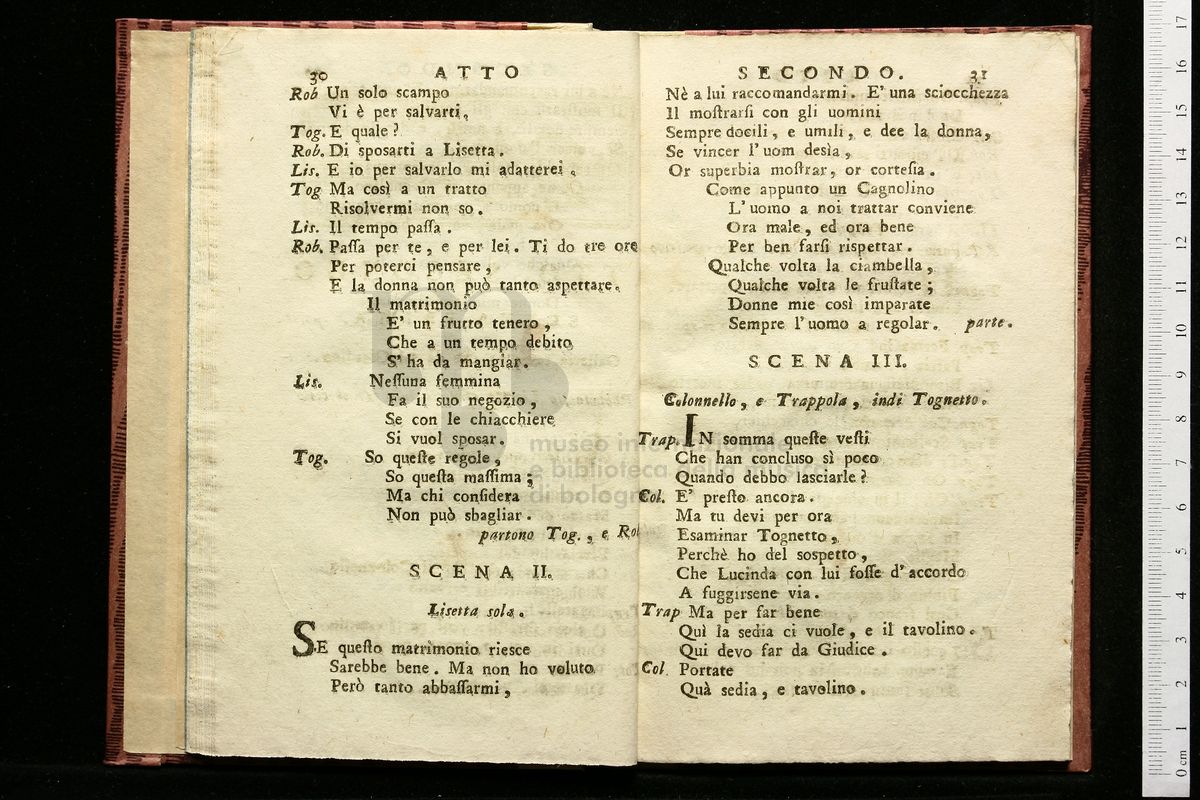 30 ATTO
Rob Un solo scampo
Vi è per salvarti.
Tog. E quale?
Rob. Di sposarti a Lisetta.
Lis. E io per salvarlo mi adatterei.
Tog Ma così a un tratto
Risolvermi non so.
Lis. Il tempo passa.
Rob. Passa per te, e per lei. Ti do tre ore
Per poterci pensare,
E la donna non può tanto aspettare.
Il matrimonio
E' un frutto tenero,
Che a un tempo debito
S' ha da mangiar.
Lis. Nessuna femmina
Fa il suo negozio,
Se con le chiacchiere
Si vuol sposar.
Tog. So queste regole,
So questa massima;
Ma chi considera
Non può sbagliar.
partono Tog., e Rob
SCENA II.
Lisetta sola.
SE questo matrimonio riesce
Sarebbe bene. Ma non ho voluto
Però tanto abbassarmi,
SECONDO. 31
Nè a lui raccomandarmi. E' una sciocchezza
Il mostrarsi con gli uomini
Sempre docili, e umili, e dee la donna,
Se vincer l'uom desìa,
Or superbia mostrar, or cortesia.
Come appunto un Cagnolino
L'uomo a noi trattar conviene
Ora male, ed ora bene
Per ben farsi rispettar.
Qualche volta la ciambella,
Qualche volta le frustate;
Donne mie così imparate
Sempre l'uomo a regolar. parte.
SCENA III.
Colonnello, e Trappola, indi Tognetto.
Trap. IN somma queste vesti
Che han concluso sì poco
Quando debbo lasciarle?
Col. E' presto ancora.
Ma tu devi per ora
Esaminar Tognetto,
Perchè ho del sospetto,
Che Lucinda con lui fosse d'accordo
A fuggirsene via.
Trap Ma per far bene
Quì la sedia ci vuole, e il tavolino.
Qui devo far da Giudice.
Col. Portate
Quà sedia, e tavolino.
museo internazionale
e biblioteca della musica
di bologna
0 cm 1 2 3 4 5 6 7 8 9 10 11 12 13 14 15 16 17